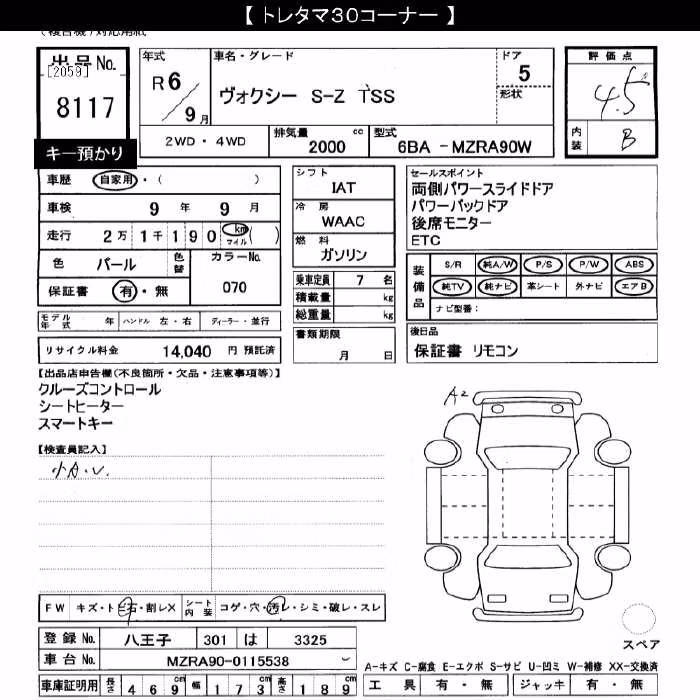 【 トレタマ30コーナー 】
出品No.
[2059]
8117
キー預かり
年式
R 6
9 月
車名・グレード
ヴォクシー S-Z TSS
ドア
5
形状
評価点
4.5
内装
B
2WD・4WD
排気量 2000 cc
型式 6BA - MZRA90W
車歴 自家用・( )
車検 9 年 9 月
走行 2万 1千 1 9 0 km マイル ( )
色 パール 色替
カラーNo. 070
保証書 有・無
モデル年式 年 ハンドル 左・右 ディーラー・並行
リサイクル料金 14,040 円 預託済
シフト
IAT
冷房
WAAC
燃料
ガソリン
乗車定員 7 名
積載量 kg
総重量 kg
書類期限
月 日
セールスポイント
両側パワースライドドア
パワーバックドア
後席モニター
ETC
装備品
S/R 純A/W P/S P/W ABS
純TV 純ナビ 革シート 外ナビ エアB
ナビ型番:
後日品
保証書 リモコン
【出品店申告欄(不良箇所・欠品・注意事項等)】
クルーズコントロール
シートヒーター
スマートキー
【検査員記入】
小A.U.
A2
FW キズ・トビ石・割レX シート内装 コゲ・穴・汚レ・シミ・破レ・スレ
登録 No. 八王子 301 は 3325
車台 No. MZRA90-0115538
車庫証明用 長さ 4 6 9 cm 幅 1 7 3 cm 高さ 1 8 9 cm
スペア
A-キズ C-腐食 E-エクボ S-サビ U-凹ミ W-補修 XX-交換済
工具 有・無 ジャッキ 有・無